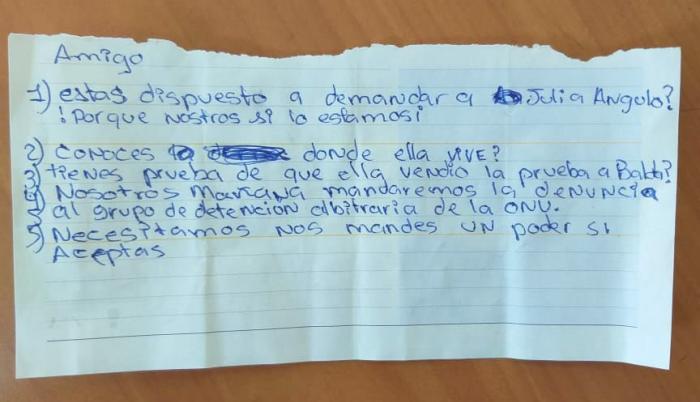 Amigo
1) estas dispuesto a demandar a Julia Angulo?
¡Porque nostros si lo estamos¡
2) conoces donde ella vive?
3) tienes prueba de que ella vendio la prueba a Balda?
4) Nosotros mañana mandaremos la denuncia
al grupo de detención arbitraria de la ONU.
5) Necesitamos nos mandes un poder si
Aceptas